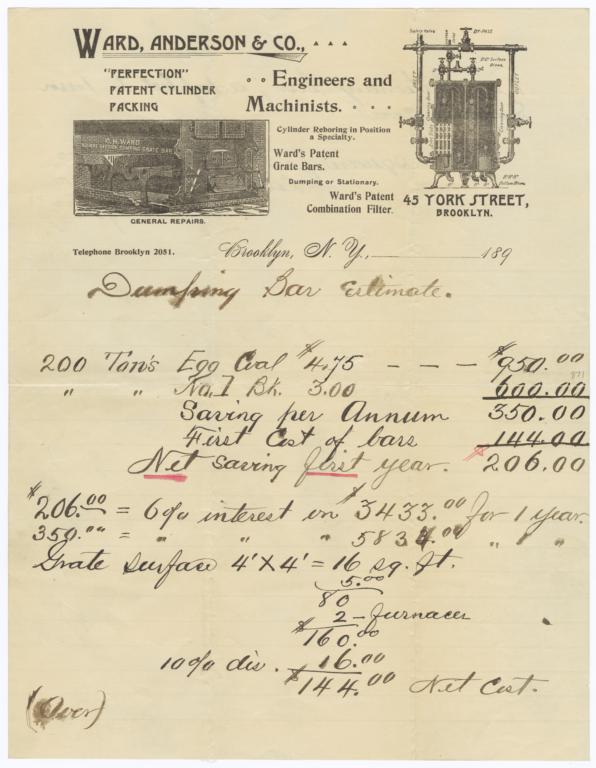 WARD, ANDERSON & CO.,
"PERFECTION"
PATENT CYLINDER
PACKING
Engineers and
Machinists.
Cylinder Reboring in Position
a Specialty.
Ward's Patent
Grate Bars.
Dumping or Stationary.
Ward's Patent
Combination Filter.
C. H. WARD
GENERAL REPAIRS.
Safety Valve
BY-PASS
45 YORK STREET,
BROOKLYN.
Telephone Brooklyn 2051.
Brooklyn, N. Y., 189
Dumping Bar Estimate.
200 Ton's Egg Coal $4.75 - - - $950.00
" " No. 1 Bk. 3.00 600.00
Saving per Annum 350.00
First Cost of bars 144.00
Net Saving first year. $206.00
$206.00 = 6% interest on $3433.00 for 1 year.
350.00 = " " " 5834.00 " 1 "
Grate surface 4' X 4' = 16 sq. ft.
5.00
80
2 - furnaces
$160.00
10% dis. 16.00
$144.00 Net Cost.
(Over)